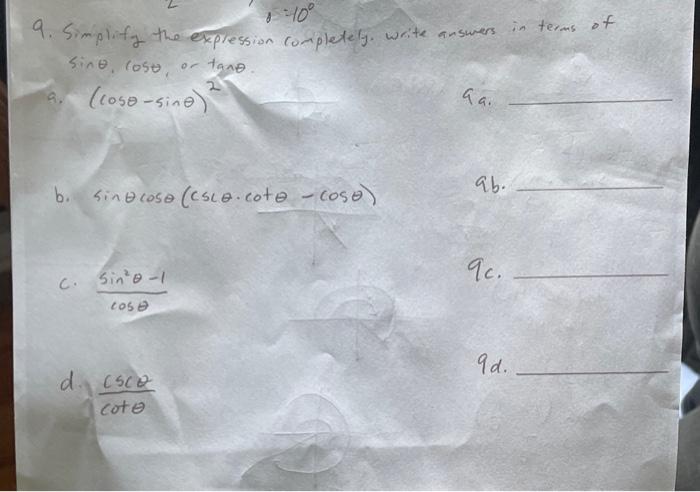 θ=10°
9. Simplify the expression completely. Write answers in terms of
sinθ, cosθ, or tanθ.
a. (cosθ-sinθ)²
9a.
b. sinθcosθ(cscθ·cotθ-cosθ)
9b.
c. sin²θ-1
cosθ
9c.
d. cscθ
cotθ
9d.